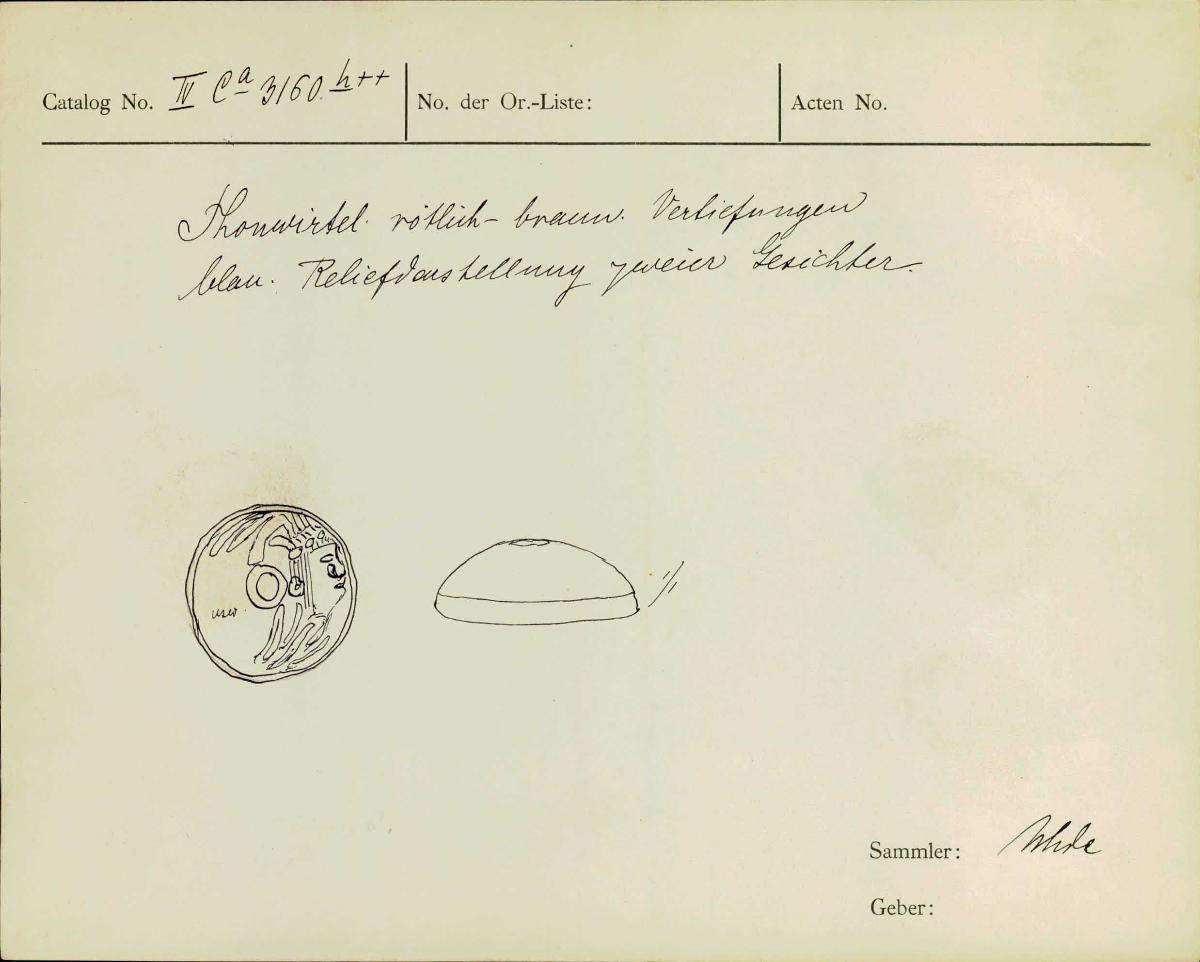 Catalog No. IV Ca 3160 h++
No. der Or.-Liste:
Acten No.
Thonwirtel. rötlich-braun. Vertiefungen
blau. Reliefdarstellung zweier Gesichter.
usw.
1/1
Sammler: Uhde
Geber: